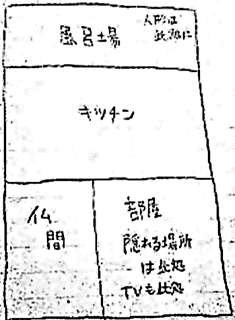 風呂場
人形は
此処に
キッチン
仏
間
部屋
隠れる場所
は此処
TVも此処